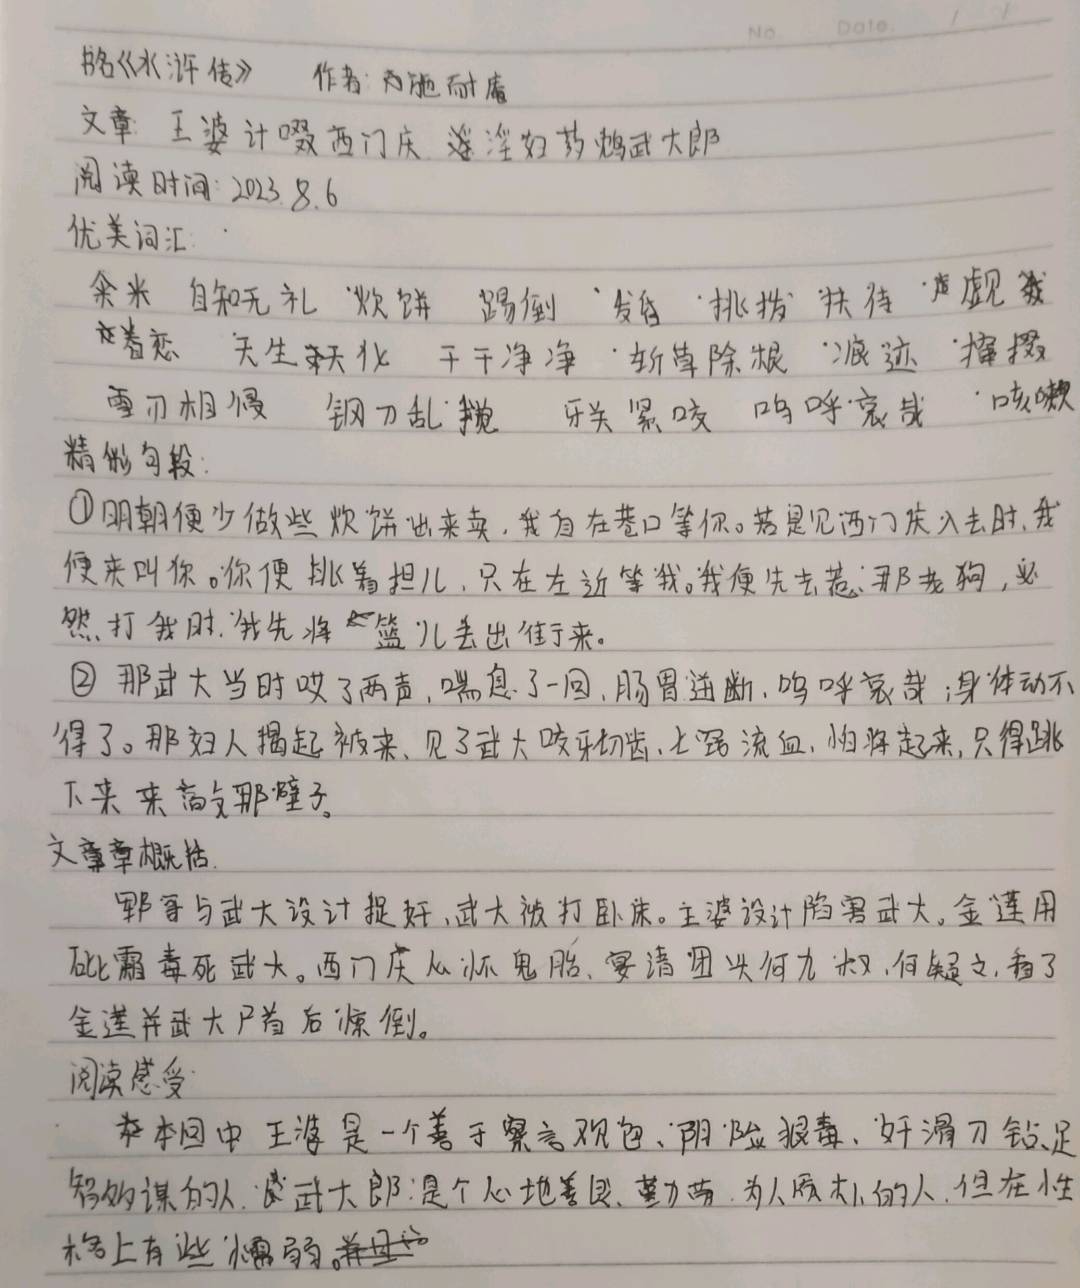 No. Date. / /
书名《水浒传》 作者:施耐庵
文章: 王婆计啜西门庆 淫妇药鸩武大郎
阅读时间:2023.8.6
优美词汇:
籴米 自知无礼 炊饼 踢倒 发昏 挑拨 扶侍 觑
看恋 天生天化 干干净净 斩草除根 浪迹 撺掇
雪刃相侵 钢刀乱搅 牙关紧咬 呜呼哀哉 咳嗽
精彩句段:
①明朝便少做些炊饼出来卖,我自在巷口等你。若是见西门庆入去时,我
便来叫你。你便挑着担儿,只在左近等我。我便先去惹那老狗,必
然打我时,我先将篮儿丢出街来。
②那武大当时哎了两声,喘息了一回,肠胃迸断,呜呼哀哉,身体动不
得了。那妇人揭起被来,见了武大咬牙切齿,七窍流血,怕将起来,只得跳
下来来敲那壁子。
文章章概括.
郓哥与武大设计捉奸,武大被打卧床。王婆设计陷害武大。金莲用
砒霜毒死武大。西门庆心怀鬼胎、宴请团头何九叔,何疑之,看了
金莲并武大尸首后惊倒。
阅读感受:
本回中王婆是一个善于察言观色、阴险狠毒、奸滑刁钻、足
智多谋的人.武大郎是个心地善良、勤劳、为人质朴的人,但在性
格上有些懦弱。